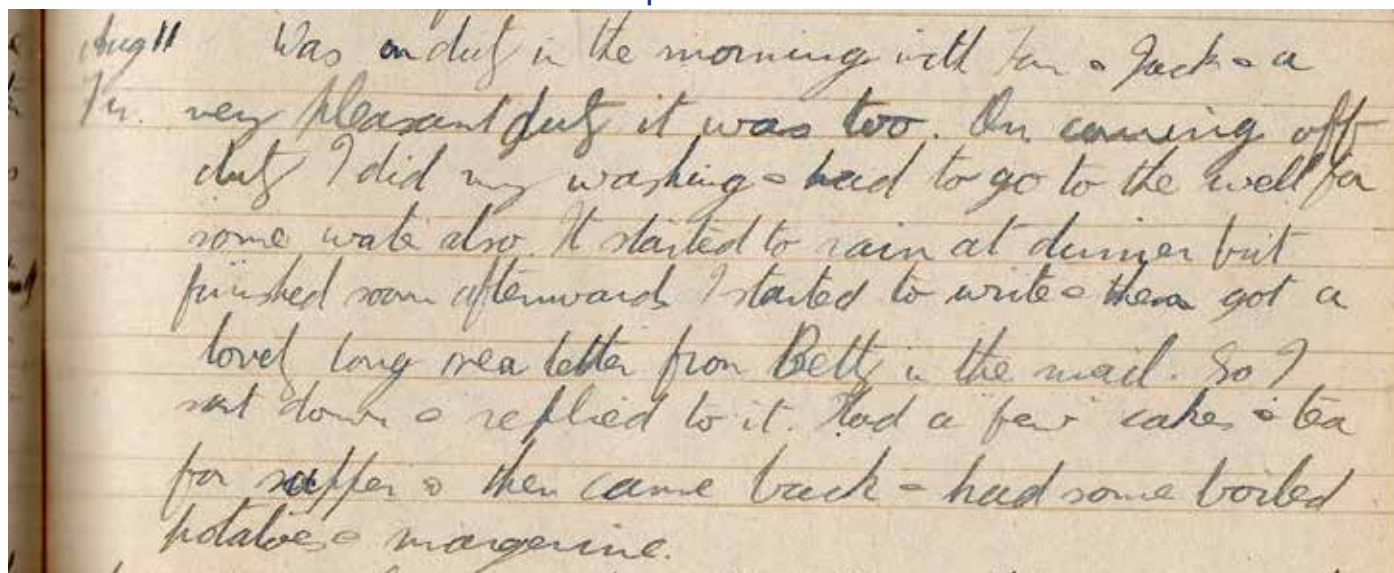 Aug 11 Was on duty in the morning with Ian & Jack & a
Fri. very pleasant duty it was too. On coming off
duty I did my washing & had to go to the well for
some wate also. It started to rain at dinner but
finished soon afterwards I started to write & then got a
lovely long letter from Betty in the mail. So I
sat down & replied to it. Had a few cakes & tea
for supper & then came back & had some boiled
potatoes & margerine.